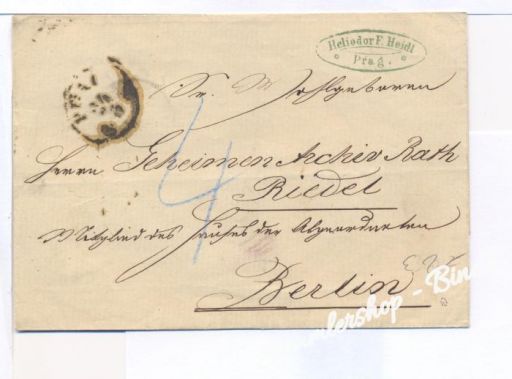 Heliodor F. Heidl
Prag.
Sr. Wohlgeboren
Herrn Geheimen Archiv Rath
Riedel
Mitglied des Hauses der Abgeordneten
Berlin
4